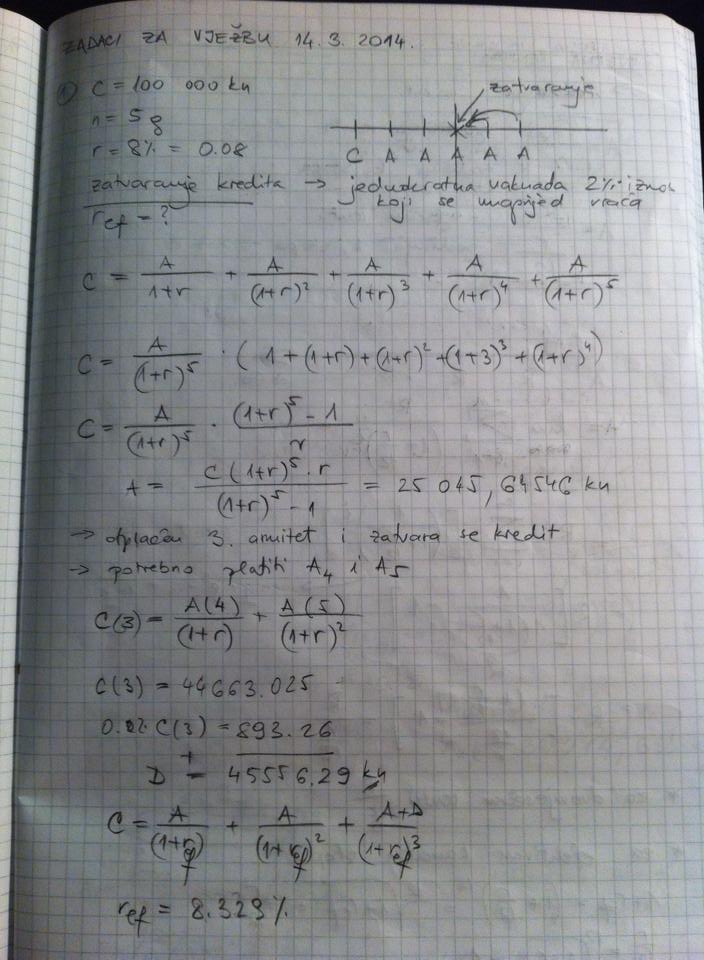 ZADACI ZA VJEŽBU 14.3.2014.
① C = 100 000 kn
zatvaranje
n = 5 g
r = 8% = 0.08
C A A A A A
zatvaranje kredita → jednokratna naknada 2% iznos
koji se unaprijed vraća
r_ef = ?
C = A/(1+r) + A/(1+r)² + A/(1+r)³ + A/(1+r)⁴ + A/(1+r)⁵
C = A/(1+r)⁵ · (1 + (1+r) + (1+r)² + (1+3)³ + (1+r)⁴)
C = A/(1+r)⁵ · ((1+r)⁵ - 1)/r
A = (C(1+r)⁵ · r)/((1+r)⁵ - 1) = 25 045,64546 kn
→ otplaćen 3. anuitet i zatvara se kredit
→ potrebno platiti A₄ i A₅
C(3) = A(4)/(1+r) + A(5)/(1+r)²
C(3) = 44663.025
0.02 · C(3) = 893.26
+
D = 45556.29 kn
C = A/(1+r_ef) + A/(1+r_ef)² + (A+D)/(1+r_ef)³
r_ef = 8.329%